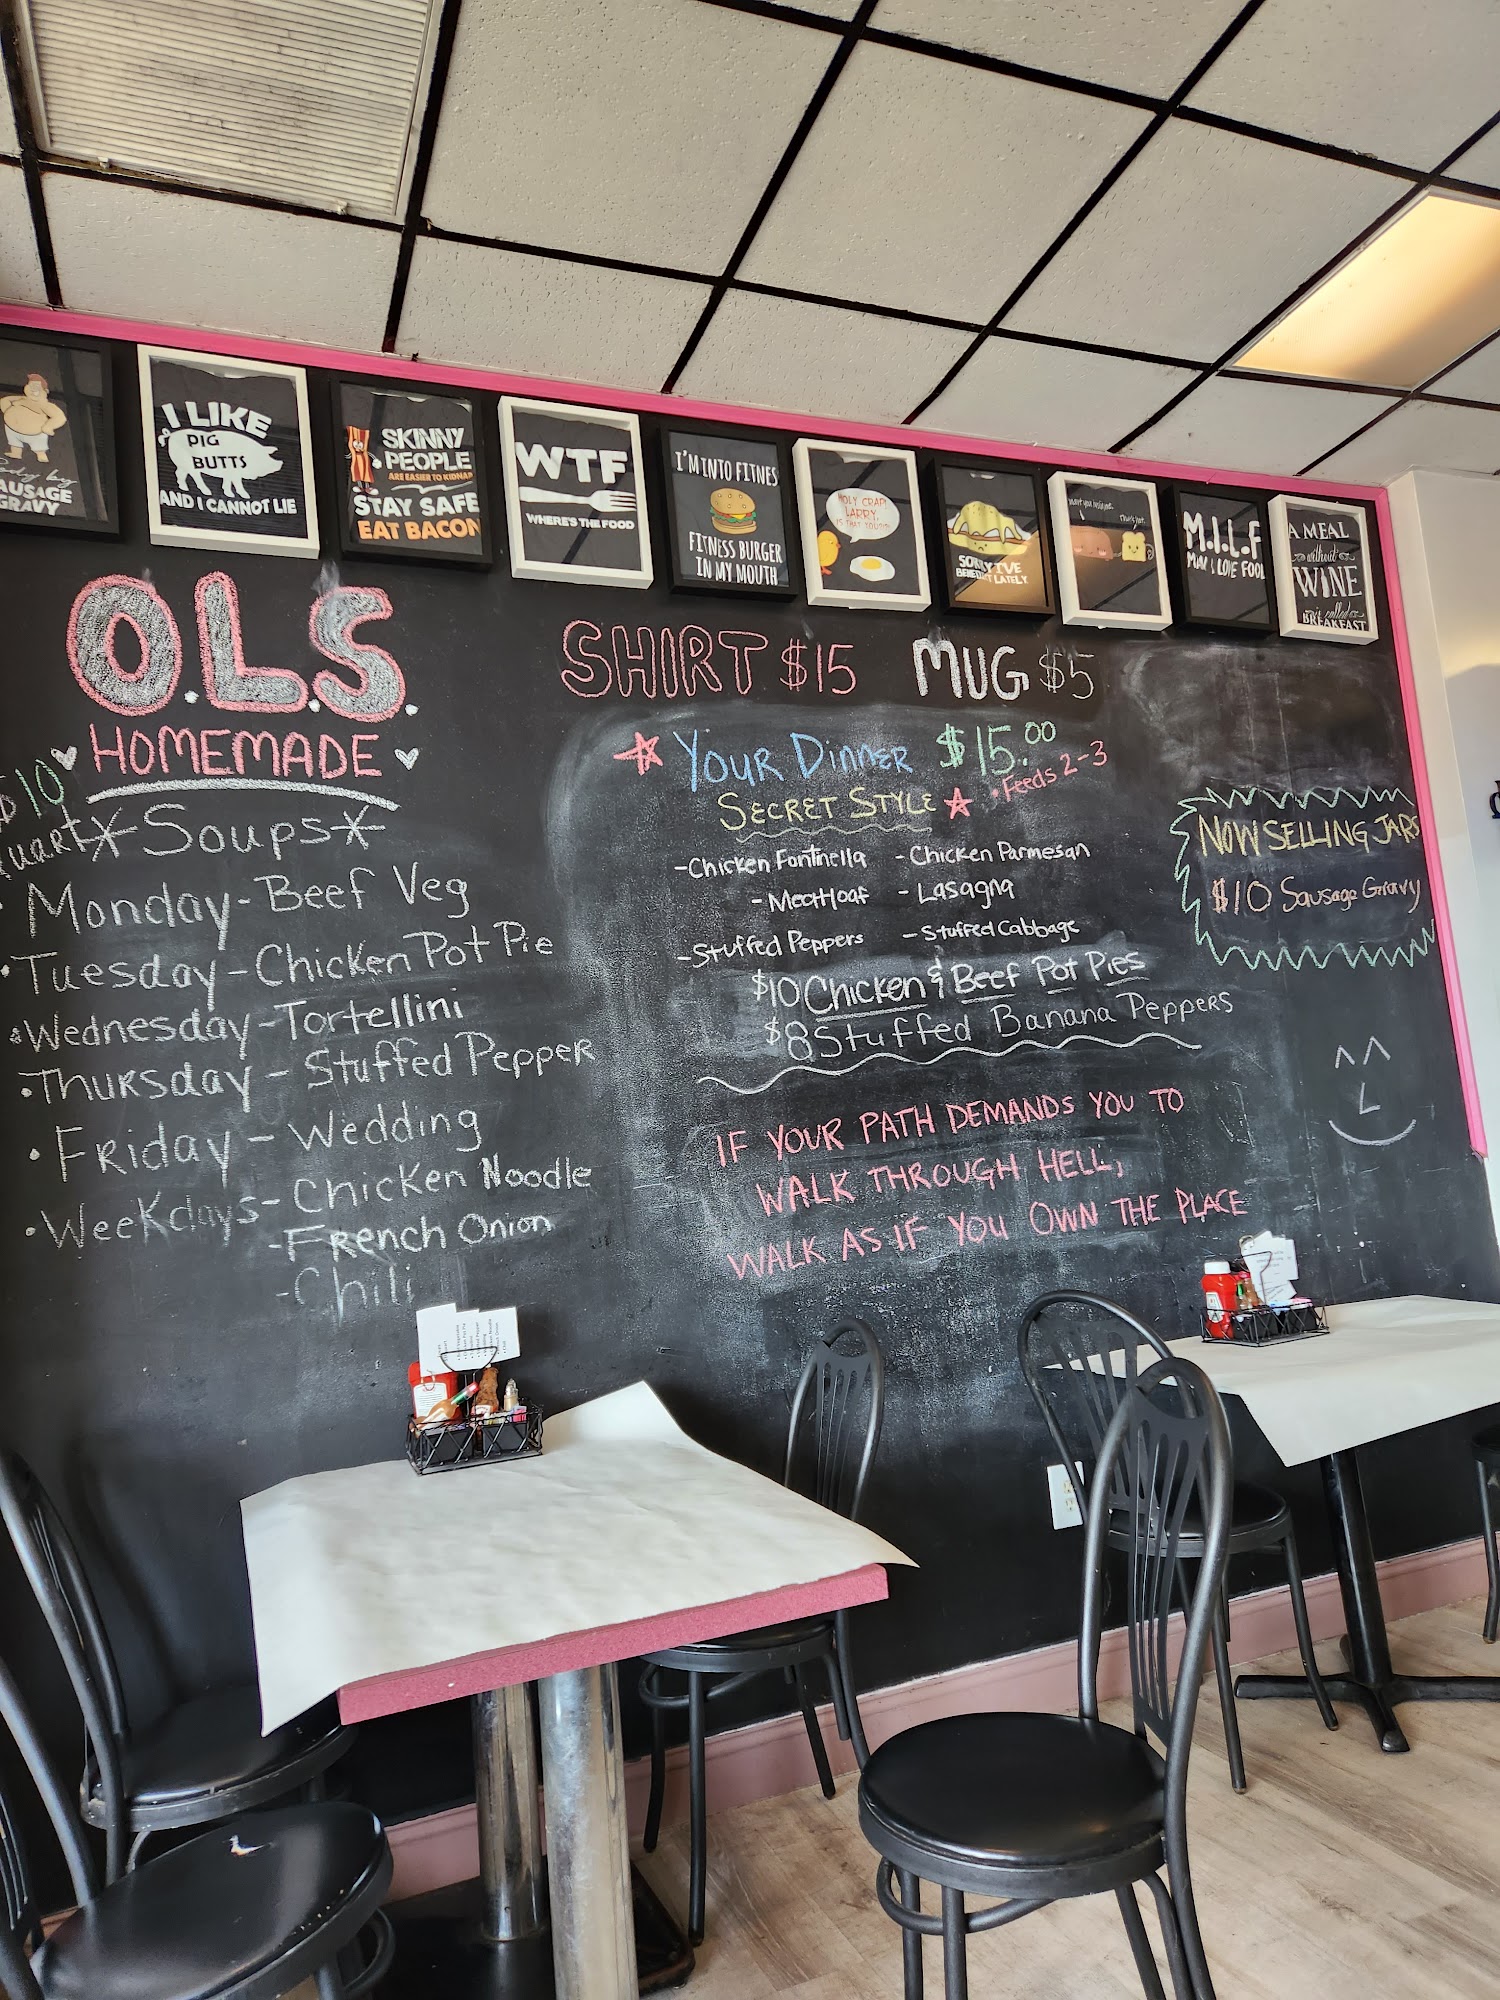 SAUSAGE
GRAVY
I LIKE
PIG
BUTTS
AND I CANNOT LIE
SKINNY
PEOPLE
ARE EASIER TO KIDNAP
STAY SAFE
EAT BACON
WTF
WHERE'S THE FOOD
I'M INTO FITNES
FITNESS BURGER
IN MY MOUTH
HOLY CRAP!
LARRY,
IS THAT YOU?!?!
SORRY I'VE
BENEDICT LATELY.
M.I.L.F
MAN I LOVE FOOD
A MEAL
without
WINE
is called
BREAKFAST
O.L.S.
HOMEMADE
$10
Quart
*Soups*
• Monday - Beef Veg
• Tuesday - Chicken Pot Pie
• Wednesday - Tortellini
• Thursday - Stuffed Pepper
• Friday - Wedding
• Weekdays - Chicken Noodle
- French Onion
- Chili
SHIRT $15 MUG $5
YOUR DINNER $15.00
SECRET STYLE • Feeds 2-3
- Chicken Fontinella - Chicken Parmesan
- Meatloaf - Lasagna
- Stuffed Peppers - Stuffed Cabbage
$10 Chicken & Beef Pot Pies
$8 Stuffed Banana Peppers
IF YOUR PATH DEMANDS YOU TO
WALK THROUGH HELL,
WALK AS IF YOU OWN THE PLACE
NOW SELLING JARS
$10 Sausage Gravy